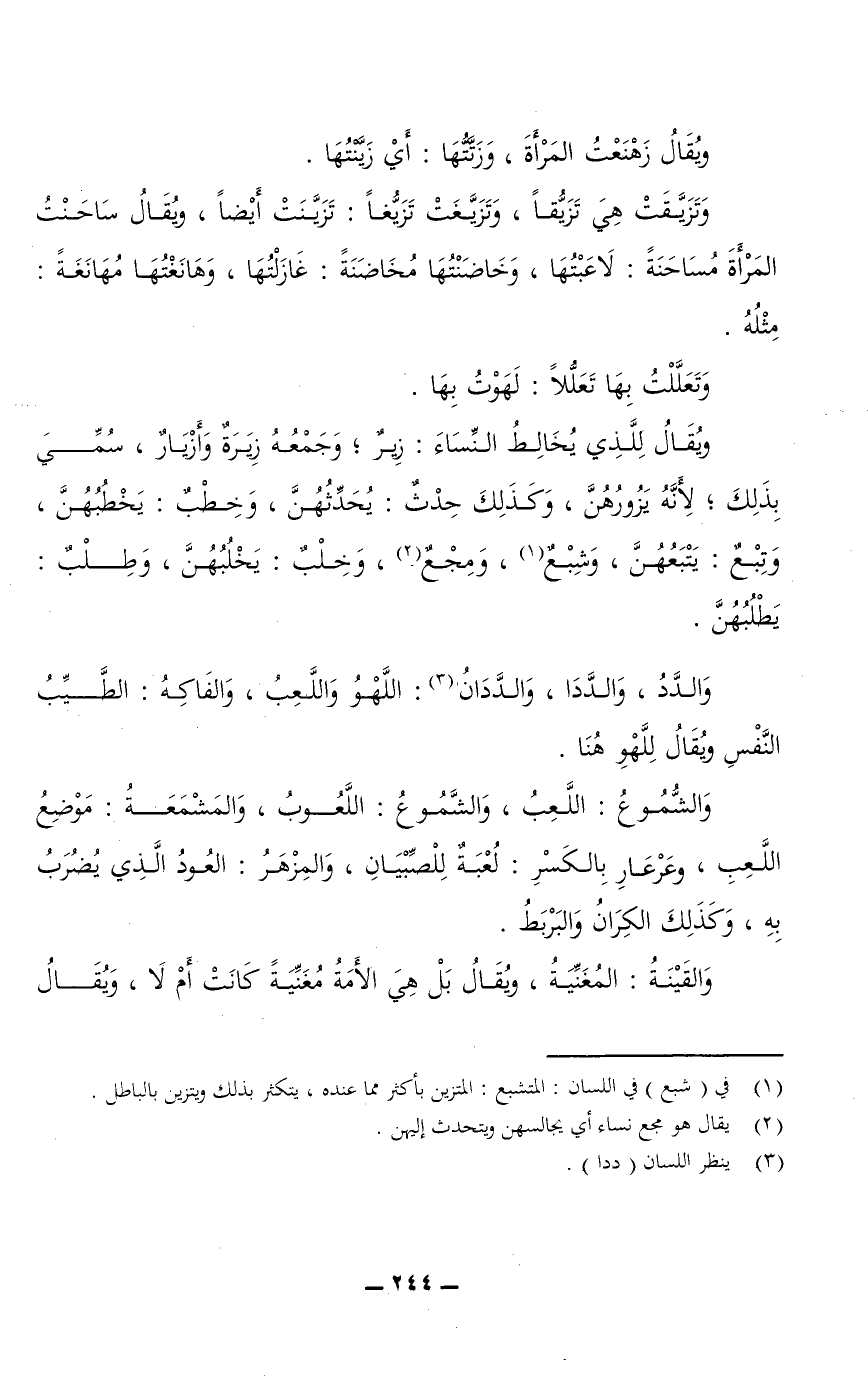 ويُقَالُ زَهْنَعْتُ المَرْأَةَ ، وَزَتَّتُّهَا : أَيْ زَيَّنْتُهَا .
وَتَزَيَّقَتْ هِيَ تَزَيُّقاً ، وَتَزَيَّغَتْ تَزَيُّغاً : تَزَيَّنَتْ أَيْضاً ، ويُقَالُ سَاحَنْتُ
المَرْأَةَ مُسَاحَنَةً : لَاعَبْتُهَا ، وَخَاضَنْتُهَا مُخَاضَنَةً : غَازَلْتُهَا ، وَهَانَغْتُهَا مُهَانَغَةً :
مِثْلُهُ .
وَتَعَلَّلْتُ بِهَا تَعَلُّلاً : لَهَوْتُ بِهَا .
ويُقَالُ لِلَّذِي يُخَالِطُ النِّسَاءَ : زِيرٌ ؛ وَجَمْعُهُ زِيَرَةٌ وَأَزْيَارٌ ، سُمِّيَ
بِذَلِكَ ؛ لِأَنَّهُ يَزُورُهُنَّ ، وَكَذَلِكَ حِدْثٌ : يُحَدِّثُهُنَّ ، وَخِطْبٌ : يَخْطُبُهُنَّ ،
وَتِبْعٌ : يَتْبَعُهُنَّ ، وَشِبْعٌ(١) ، وَمِجْعٌ(٢) ، وَخِلْبٌ : يَخْلُبُهُنَّ ، وَطِلْبٌ :
يَطْلُبُهُنَّ .
وَالدَّدُ ، وَالدَّدَا ، وَالدَّدَانُ(٣) : اللَّهْوُ وَاللَّعِبُ ، وَالفَاكِهُ : الطَّيِّبُ
النَّفْسِ ويُقَالُ لِلَّهْوِ هُنَا .
وَالشُّمُوعُ : اللَّعِبُ ، وَالشَّمُوعُ : اللَّعُوبُ ، وَالمَشْمَعَةُ : مَوْضِعُ
اللَّعِبِ ، وعَرْعَارِ بِالكَسْرِ : لُعْبَةٌ لِلصِّبْيَانِ ، وَالمِزْهَرُ : العُودُ الَّذِي يُضْرَبُ
بِهِ ، وَكَذَلِكَ الكِرَانُ وَالبَرْبَطُ .
وَالقَيْنَةُ : المُغَنِّيَةُ ، ويُقَالُ بَلْ هِيَ الأَمَةُ مُغَنِّيَةً كَانَتْ أَمْ لَا ، وَيُقَالُ
(١) في ( شبع ) في اللسان : المتشبع : المتزين بأكثر مما عنده ، يتكثر بذلك ويتزين بالباطل .
(٢) يقال هو مجع نساء أي يجالسهن ويتحدث إليهن .
(٣) ينظر اللسان ( ددا ) .
— ٢٤٤ —